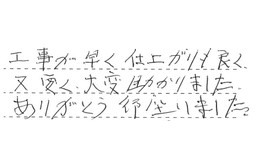 工事が早く仕上がりも良く
又安く、大変助かりました。
ありがとう御座いました。